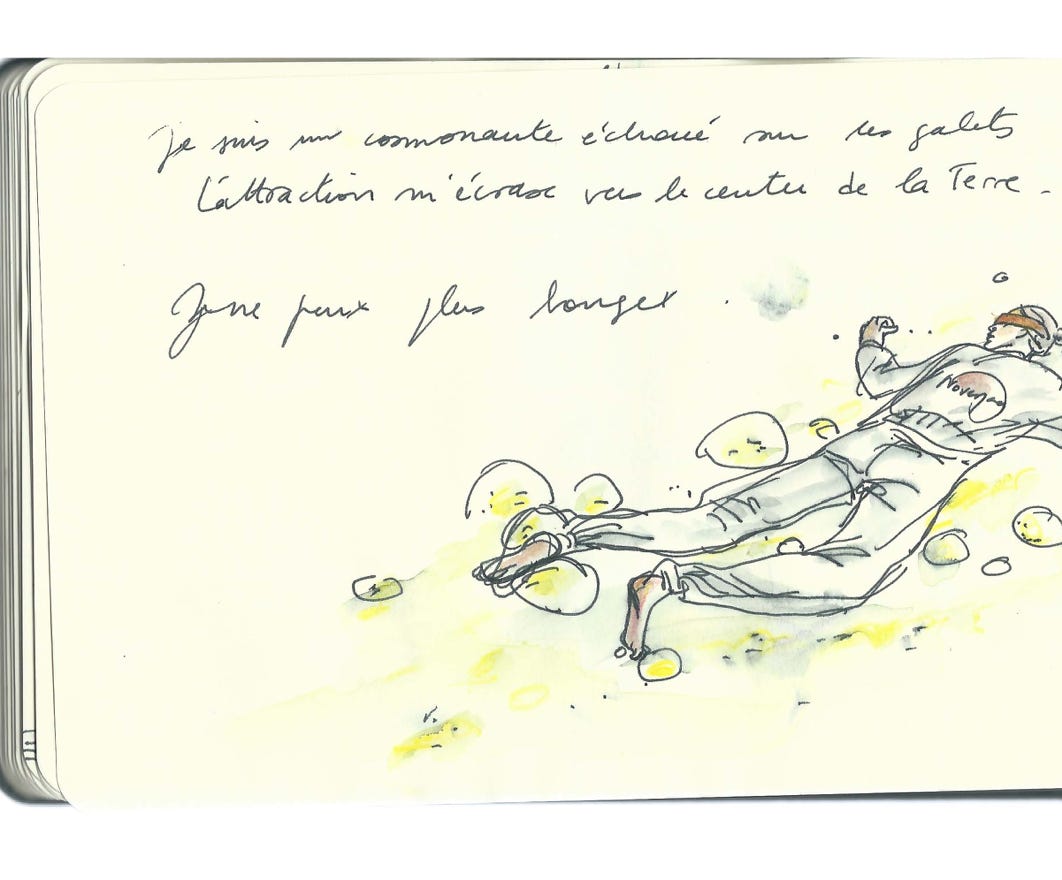 Je suis un cosmonaute échoué sur les galets
L'attraction m'écrase vers le centre de la Terre.
Je ne peux plus bouger.